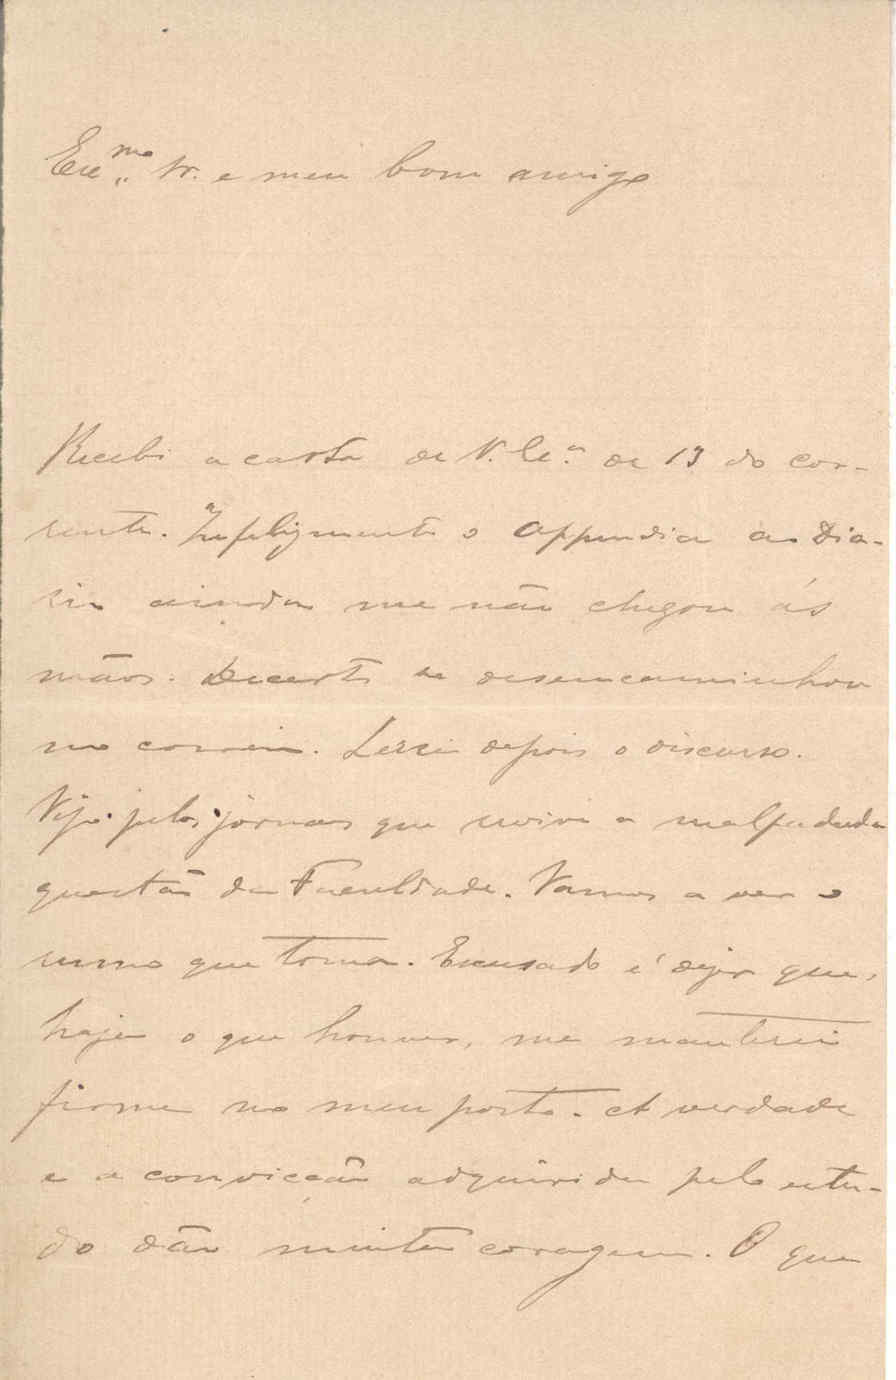 Exc.mo Sr. e meu bom amigo
Recebi a carta de V. Ex.a de 13 do cor-
rente. Infelizmente o appendice ao Dia-
rio ainda me não chegou ás
mãos. Decerto se desencaminhou
no correio. Lerei depois o discurso.
Vejo pelos jornaes que revive a malfadada
questão da Faculdade. Vamos a ver o
rumo que toma. Excusado é dizer que,
haja o que houver, me manterei
firme no meu posto. A verdade
e a convicção adquirida pelo estu-
do dão muita coragem. O que